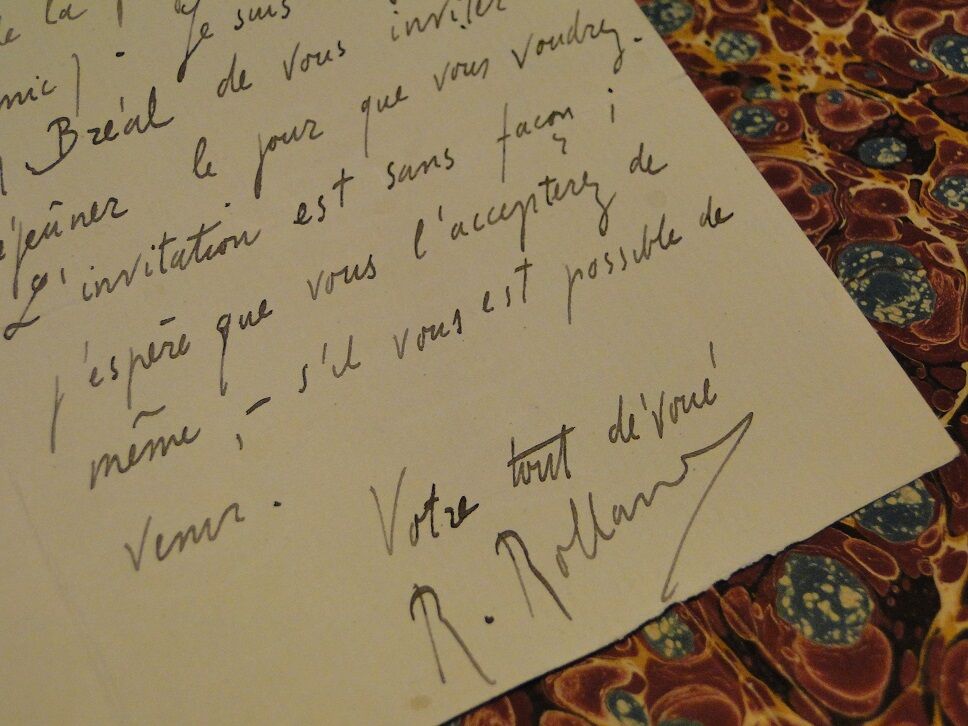 de la
mic). Je suis
Bréal de vous inviter
déjeûner le jour que vous voudrez.
L'invitation est sans façon ;
j'espère que vous l'accepterez de
même, – s'il vous est possible de
venir. Votre tout dévoué
R. Rolland